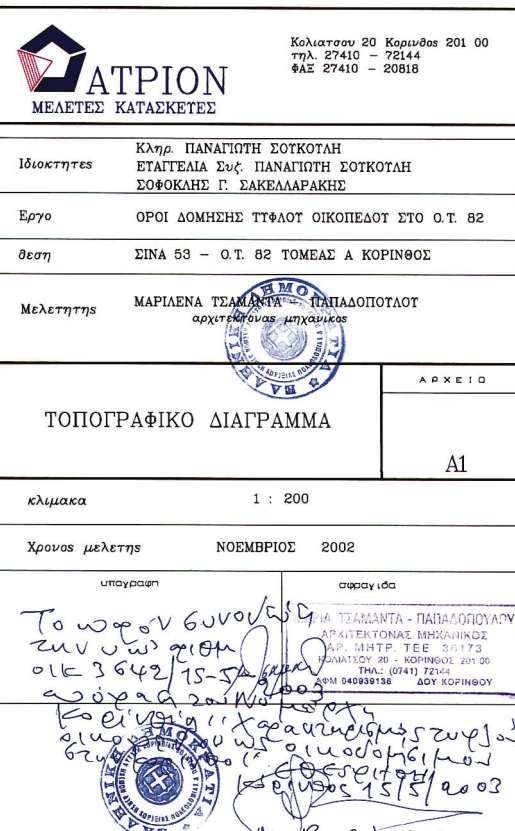 Κολιατσου 20 Κορινθος 201 00
τηλ. 27410 – 72144
ΦΑΞ 27410 – 20818
ΑΤΡΙΟΝ
ΜΕΛΕΤΕΣ ΚΑΤΑΣΚΕΤΕΣ
Ιδιοκτητες
Κληρ. ΠΑΝΑΓΙΩΤΗ ΣΟΥΚΟΥΛΗ
ΕΤΑΓΓΕΛΙΑ Συζ. ΠΑΝΑΓΙΩΤΗ ΣΟΥΚΟΥΛΗ
ΣΟΦΟΚΛΗΣ Γ. ΣΑΚΕΛΛΑΡΑΚΗΣ
Εργο ΟΡΟΙ ΔΟΜΗΣΗΣ ΤΥΦΛΟΥ ΟΙΚΟΠΕΔΟΥ ΣΤΟ Ο.Τ. 82
θεση ΣΙΝΑ 53 – Ο.Τ. 82 ΤΟΜΕΑΣ Α ΚΟΡΙΝΘΟΣ
Μελετητης ΜΑΡΙΛΕΝΑ ΤΣΑΜΑΝΤΑ – ΠΑΠΑΔΟΠΟΥΛΟΥ
αρχιτεκτονας μηχανικος
ΕΛΛΗΝΙΚΗ ΔΗΜΟΚΡΑΤΙΑ
ΑΡΧΕΙΟ
ΤΟΠΟΓΡΑΦΙΚΟ ΔΙΑΓΡΑΜΜΑ
Α1
κλιμακα 1 : 200
Χρονος μελετης ΝΟΕΜΒΡΙΟΣ 2002
υπογραφη σφραγιδα
ΤΣΑΜΑΝΤΑ - ΠΑΠΑΔΟΠΟΥΛΟΥ
ΑΡΧΙΤΕΚΤΟΝΑΣ ΜΗΧΑΝΙΚΟΣ
ΑΡ. ΜΗΤΡ. ΤΕΕ 36173
ΚΟΛΙΑΤΣΟΥ 20 - ΚΟΡΙΝΘΟΣ 201 00
ΤΗΛ.: (0741) 72144
ΑΦΜ 040939136 ΔΟΥ ΚΟΡΙΝΘΟΥ
Το παρόν συνοδεύει
την υπ' αριθμ
οικ 3642/15-5-
Χαρακτηρισμός τυφλού
Κόρινθος 15/5/2003